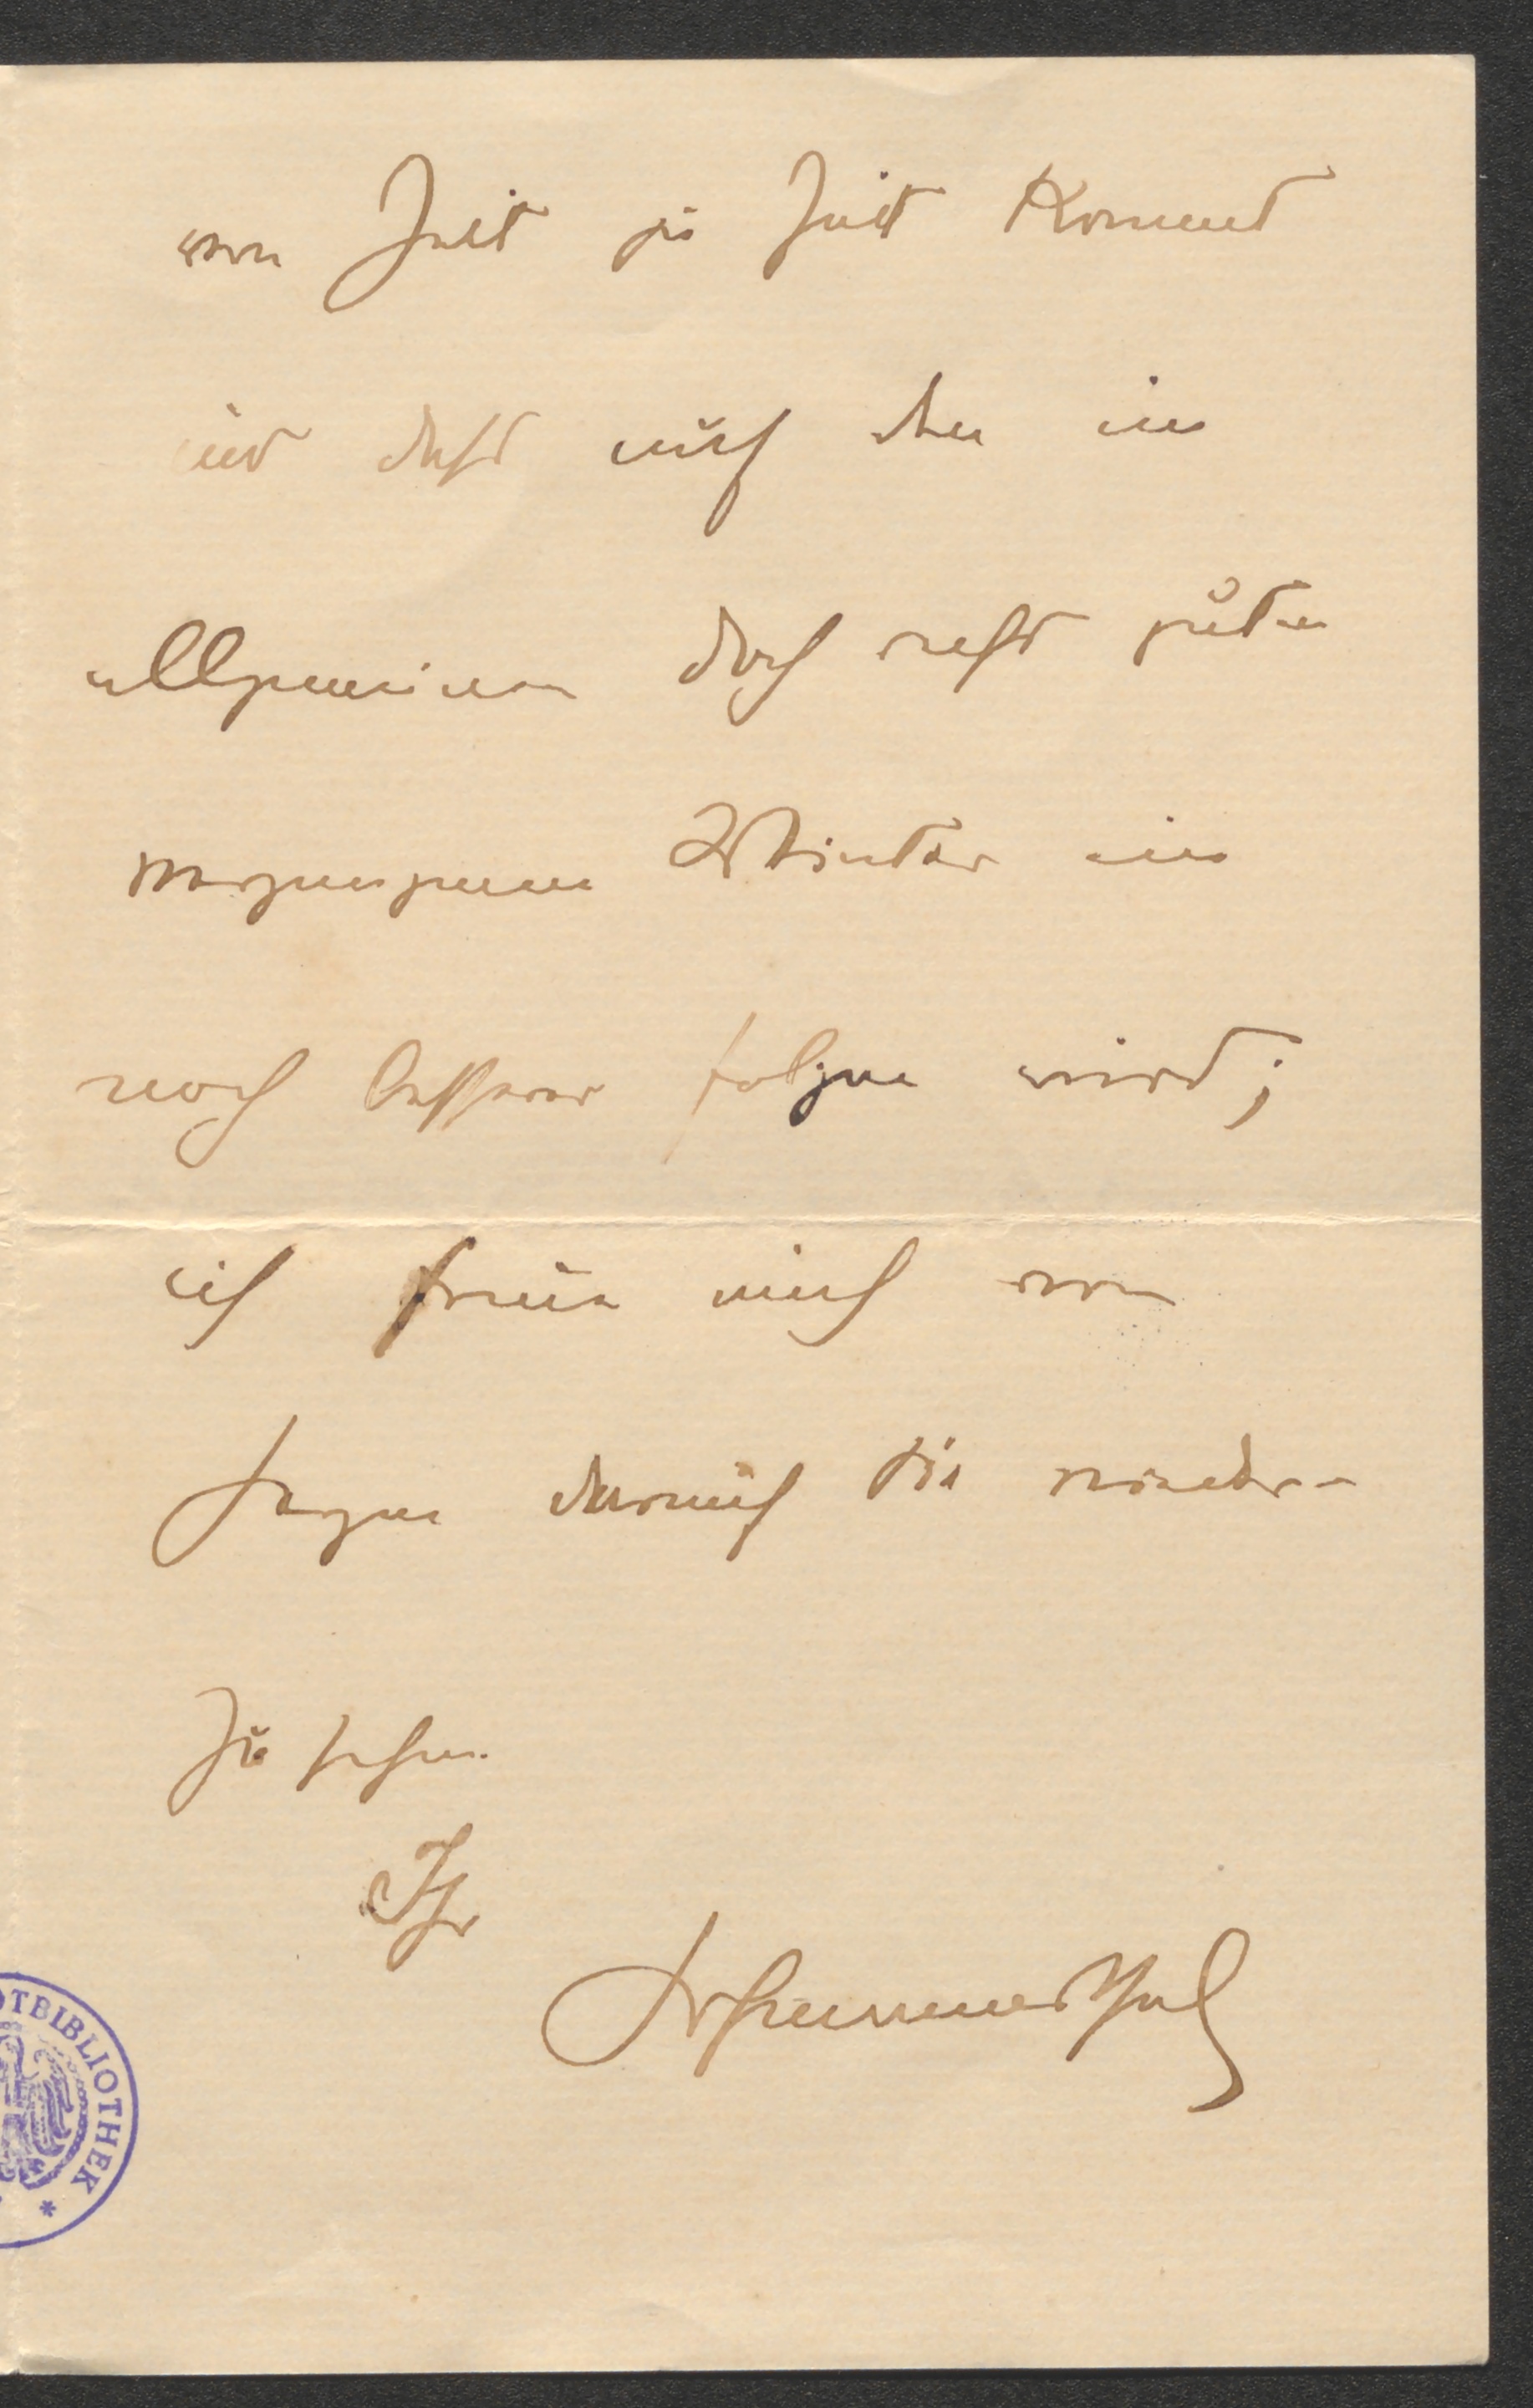 von Zeit zu Zeit kommt
und dass auf den im
allgemeinen doch recht guten
vergangenen Winter ein
noch besserer folgen wird;
ich freue mich von
Herzen darauf Sie wieder
zu sehen.
Ihr
Hofmannsthal
TBIBLIOTHEK *